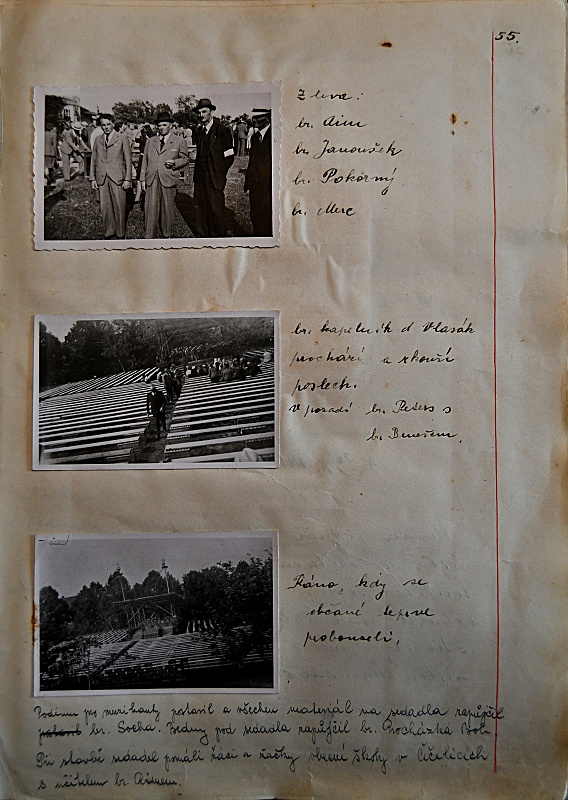 55.
Zleva:
br. Aim
br. Janoušek
br. Pokorný
br. Merc
br. kapelník d Vlasák
prochází a zkouší
poslech.
V pozadí br. Peters s
br. Benešem.
Ráno, kdy se
občané teprve
probouzeli,
Podium pro muzikanty postavil a všechen materiál na sedadla zapůjčil
br. Socha. Bedny pod sedadla zapůjčil br. Procházka Boh.
Při stavbě sedadel pomáli žáci a žačky obecné školy v Číčelicích
s učitelem br. Aimem.